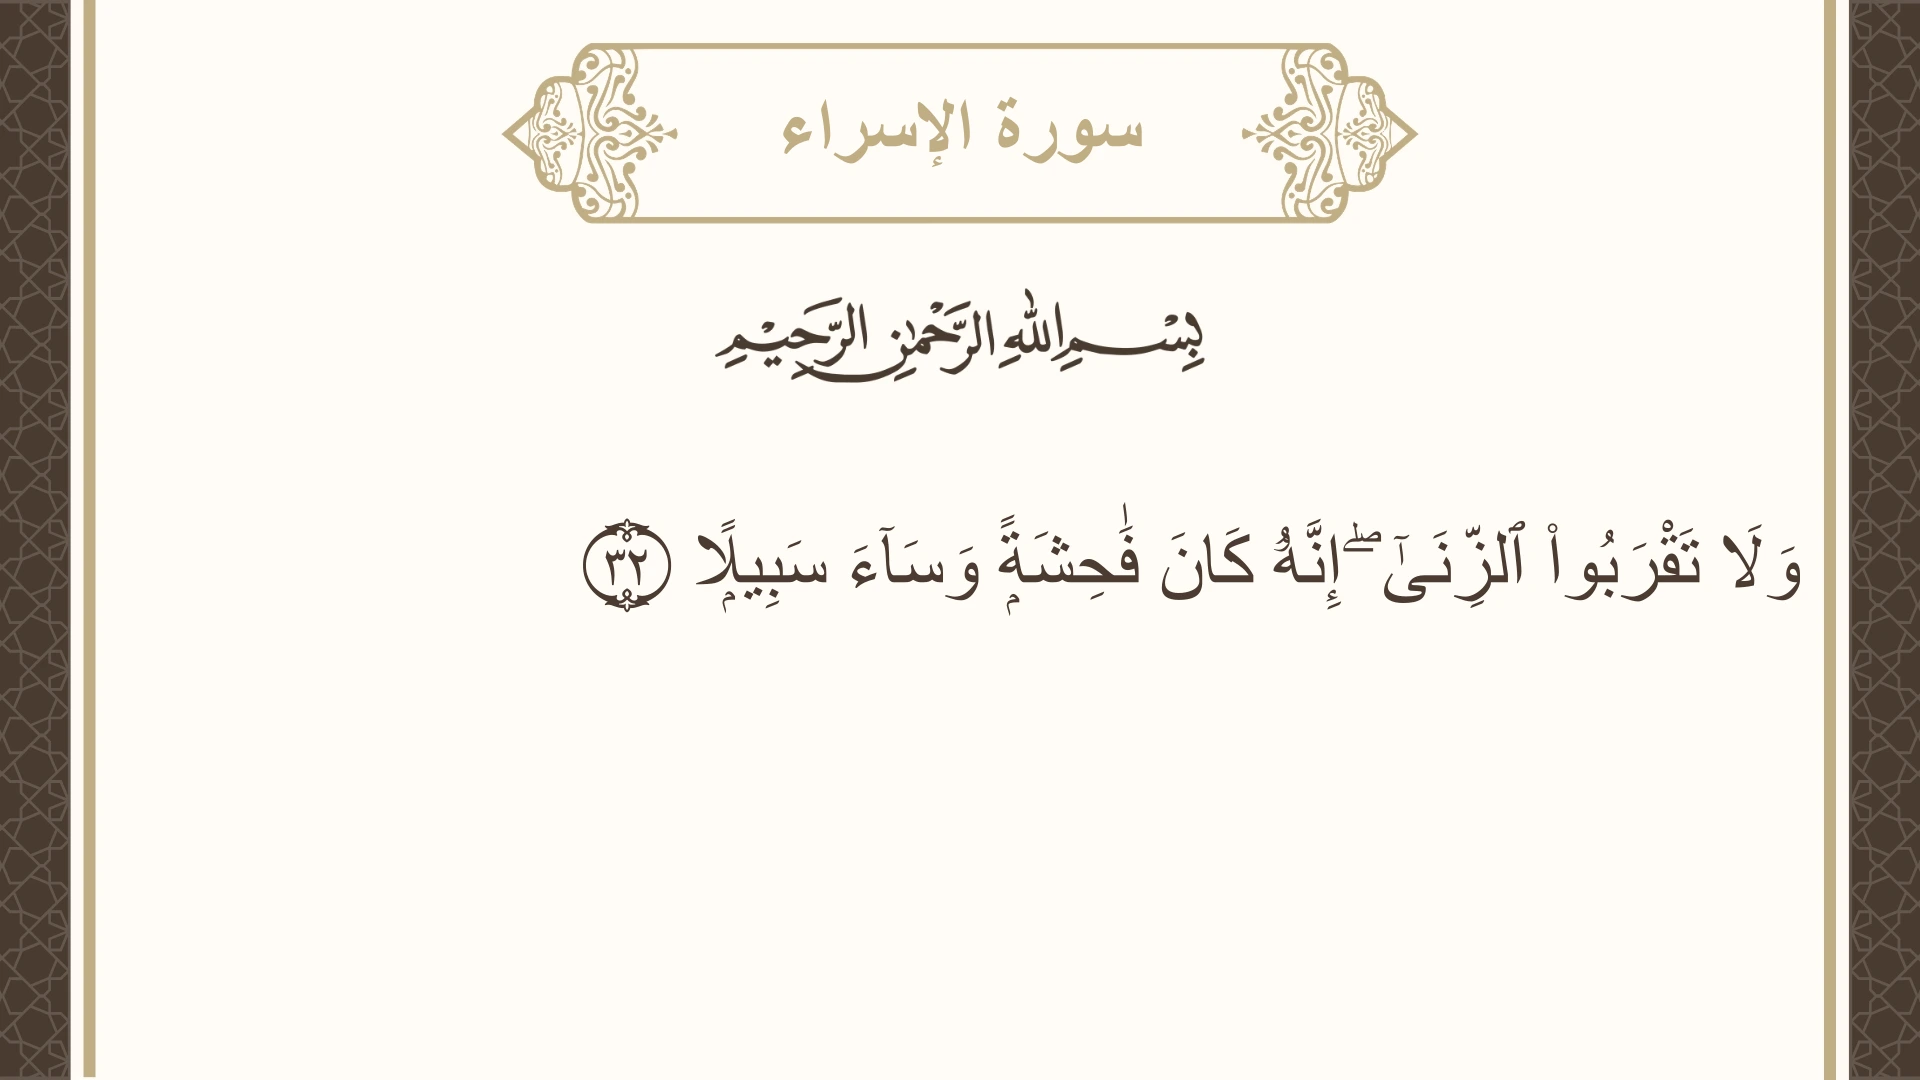 سورة الإسراء
بِسْمِ اللهِ الرَّحْمٰنِ الرَّحِيْمِ
وَلَا تَقْرَبُوا۟ ٱلزِّنَىٰٓ ۖ إِنَّهُۥ كَانَ فَٰحِشَةًۭ وَسَآءَ سَبِيلًۭا ٣٢